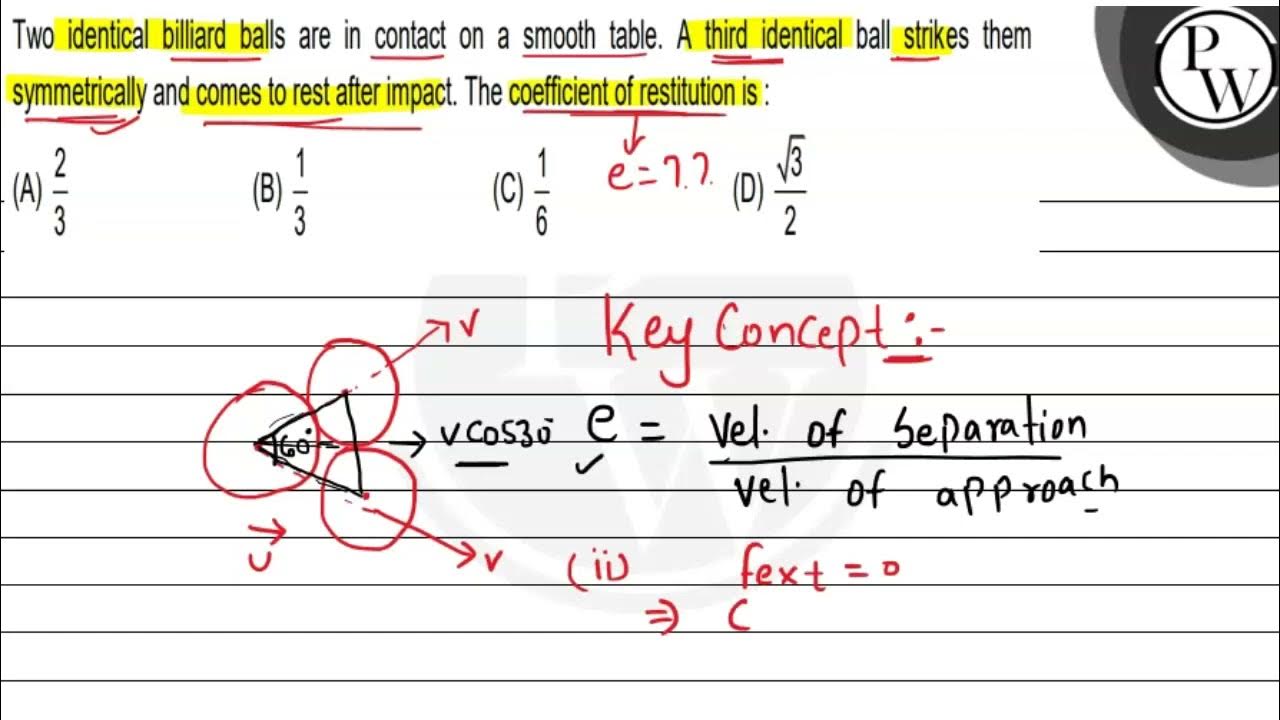 Two identical billiard balls are in contact on a smooth table. A third identical ball strikes them
symmetrically and comes to rest after impact. The coefficient of restitution is :
(A) 2/3 (B) 1/3 (C) 1/6 (D) √3/2
e = ? ?
P
W
Key Concept :-
v
60°
vcos30° e = Vel. of Separation / Vel. of approach
u
v
(ii) fext = 0
⇒ (